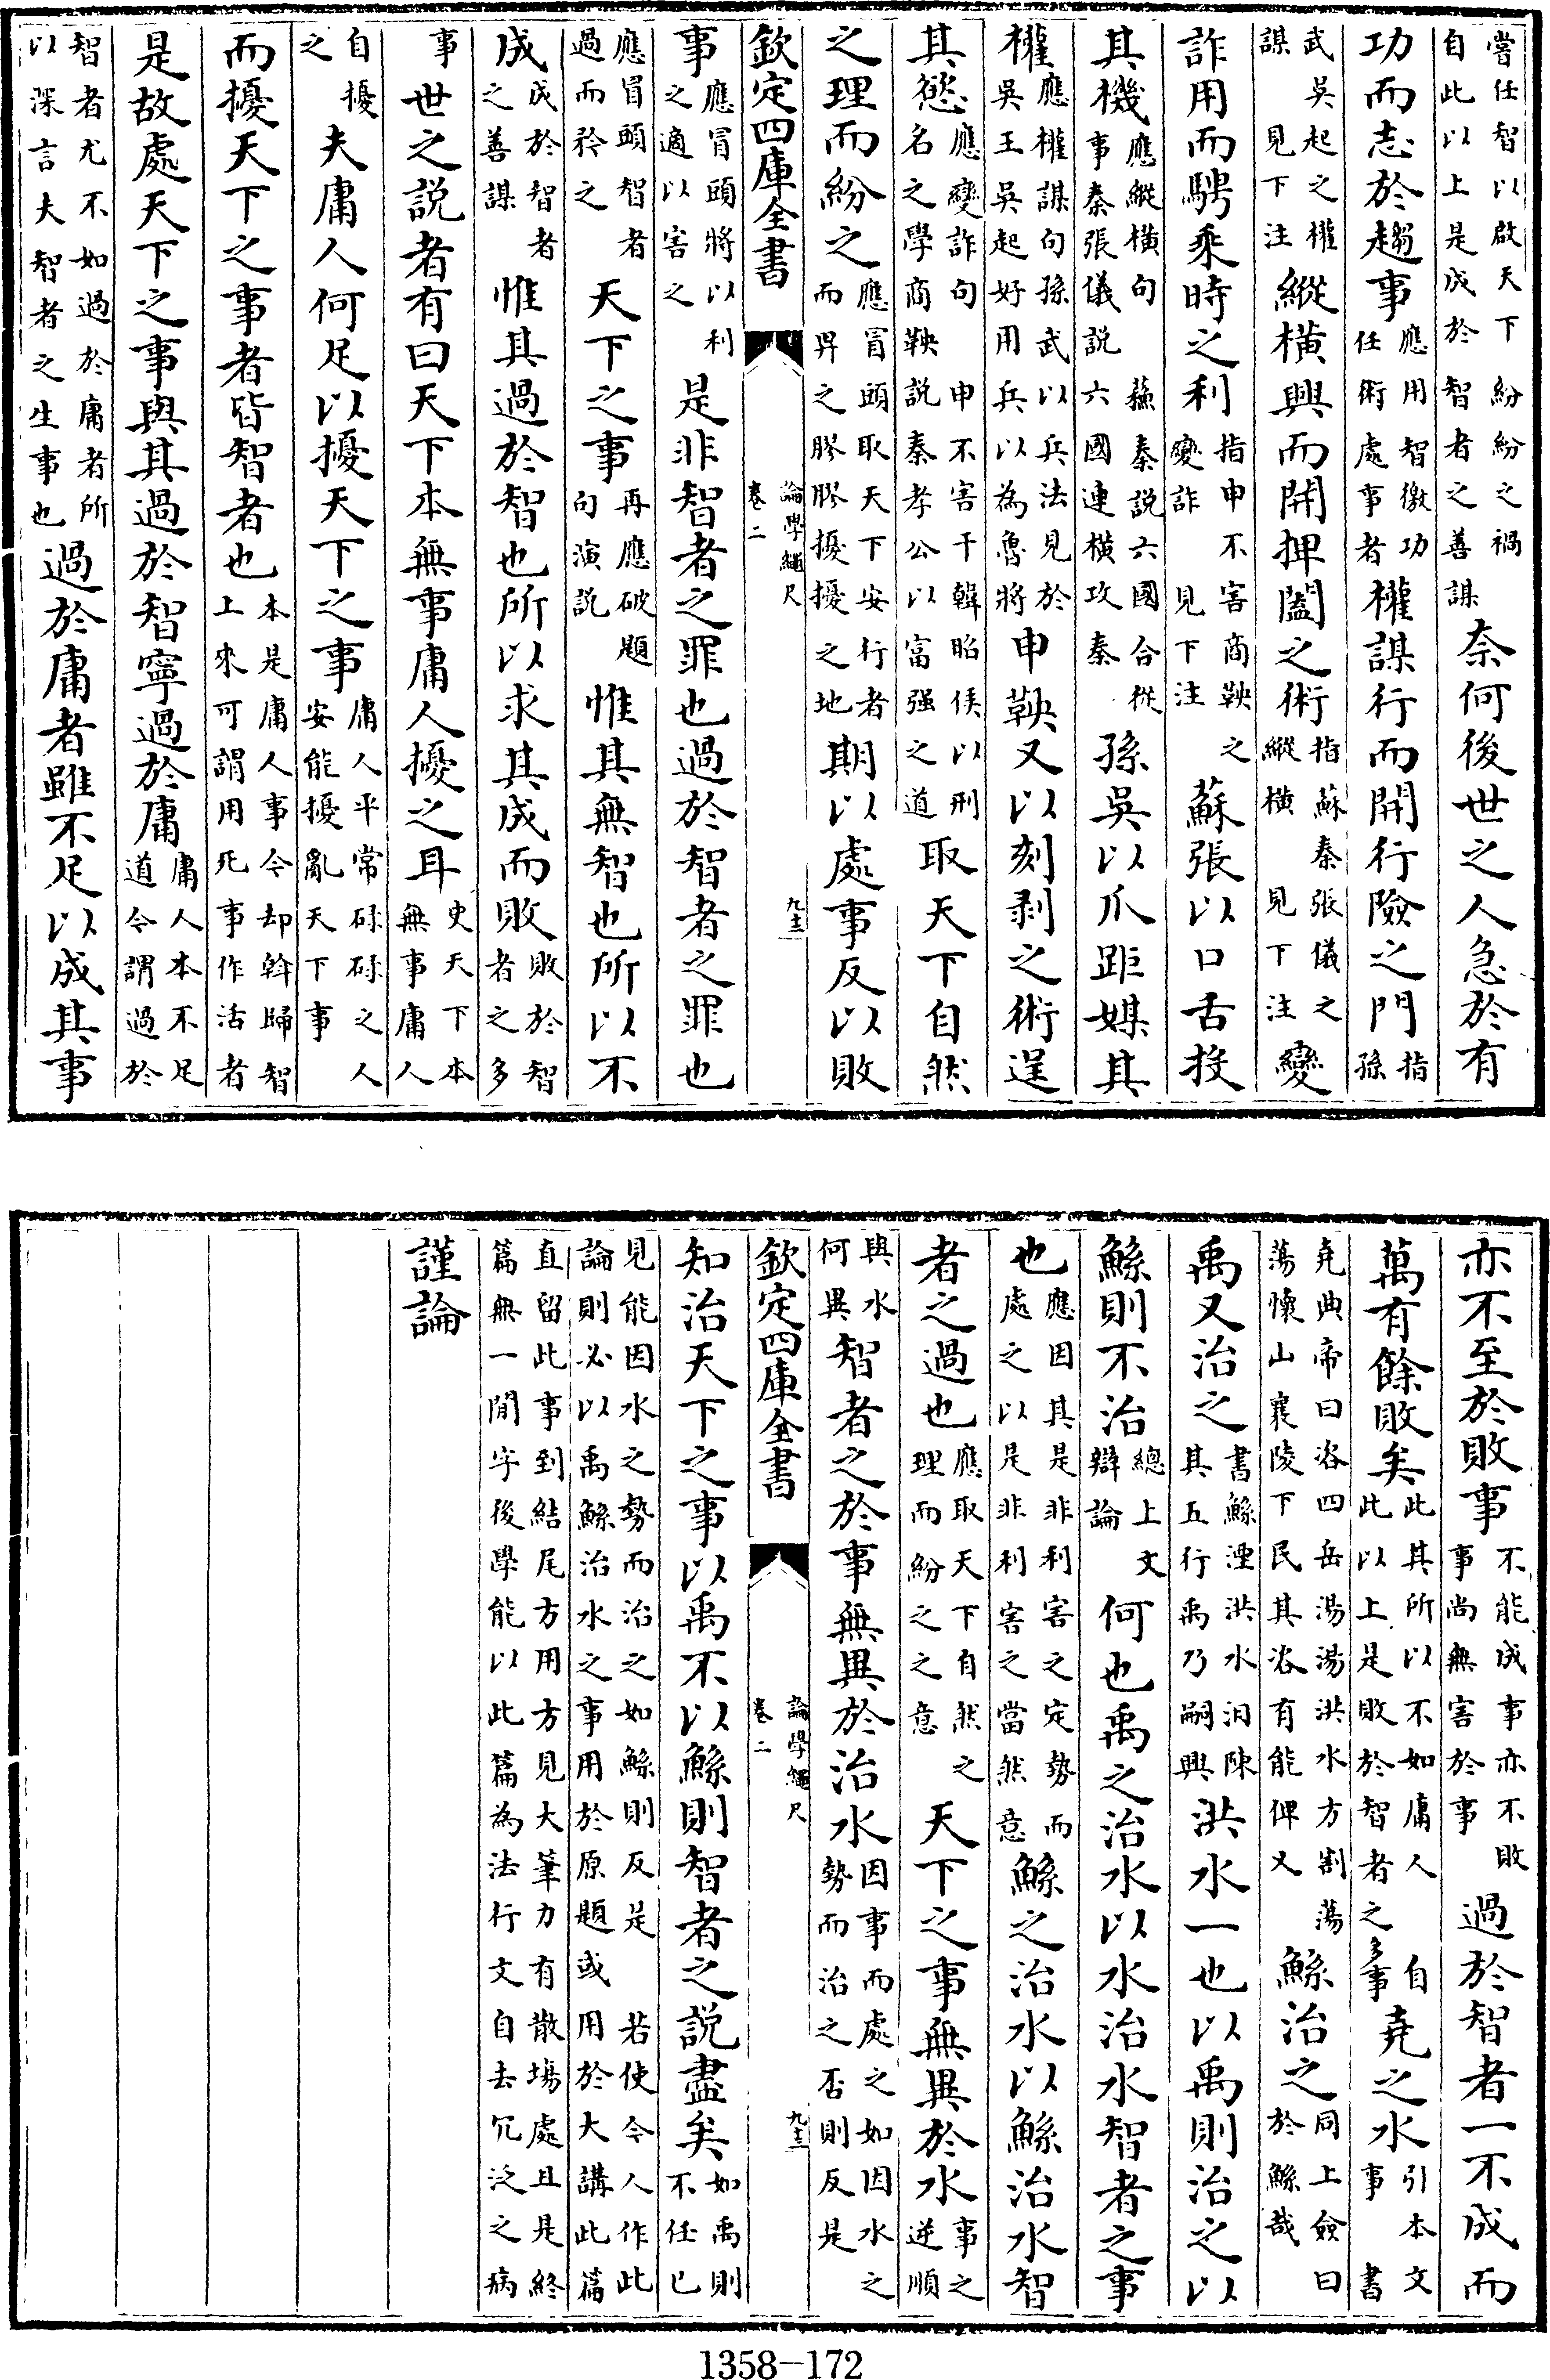 嘗任智以啟天下紛紛之禍自此以上是成於智者之善謀奈何後世之人急於有
功而志於趨事應用智徼功任術處事者權謀行而開行險之門指孫
武吳起之權謀見下注縱橫興而開捭闔之術指蘇秦張儀之縱橫見下注變
詐用而騁乘時之利指申不害商鞅之變詐見下注蘇張以口舌投
其機應縱橫句蘇秦説六國合從事秦張儀説六國連橫攻秦孫吳以爪距媒其
權應權謀句孫武以兵法見於吳王吳起好用兵以為魯將申鞅又以刻剥之術逞
其慾應變詐句申不害干韓昭侯以刑名之學商鞅説秦孝公以富强之道取天下自然
之理而紛之應冒頭取天下安行者而畀之膠膠擾擾之地期以處事反以敗
欽定四庫全書
論學繩尺
卷二
九十三
事應冒頭將以利之適以害之是非智者之罪也過於智者之罪也
應冒頭智者過而矜之天下之事再應破題句演説惟其無智也所以不
成成於智者之善謀惟其過於智也所以求其成而敗敗於智者之多
事世之説者有曰天下本無事庸人擾之耳史天下本無事庸人
自擾之夫庸人何足以擾天下之事庸人平常碌碌之人安能擾亂天下事
而擾天下之事者皆智者也本是庸人事今却斡歸智上來可謂用死事作活者
是故處天下之事與其過於智寧過於庸庸人本不足道今謂過於
智者尤不如過於庸者所以深言夫智者之生事也過於庸者雖不足以成其事
亦不至於敗事不能成事亦不敗事尚無害於事過於智者一不成而
萬有餘敗矣此其所以不如庸人此以上是敗於智者之多事自堯之水引本文事書
堯典帝曰咨四岳湯湯洪水方割蕩蕩懷山襄陵下民其咨有能俾乂鯀治之同上僉曰於鯀哉
禹又治之書鯀湮洪水汩陳其五行禹乃嗣興洪水一也以禹則治之以
鯀則不治總上文辯論何也禹之治水以水治水智者之事
也應因其是非利害之定勢而處之以是非利害之當然意鯀之治水以鯀治水智
者之過也應取天下自然之理而紛之之意天下之事無異於水事之逆順
與水何異智者之於事無異於治水因事而處之如因水之勢而治之否則反是
欽定四庫全書
論學繩尺
卷二
九十三
知治天下之事以禹不以鯀則智者之説盡矣如禹則不任已
見能因水之勢而治之如鯀則反是若使今人作此論則必以禹鯀治水之事用於原題或用於大講此篇
直留此事到結尾方用方見大筆力有散場處且是終篇無一閒字後學能以此篇為法行文自去冗泛之病
謹論
1358-172